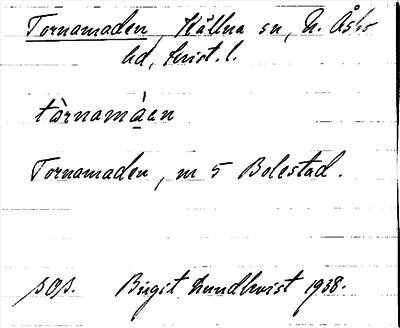 Tornamaden, Källna sn, N. Åsbo
hd, krist. l.
tòrnamáen
Tornamaden, m 5 Bolestad.
sgs. Birgit Lundkvist 1938.